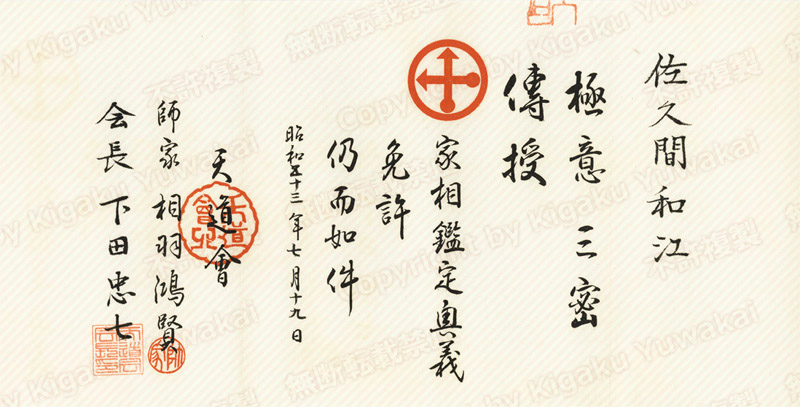 佐久間和江
極意三密
傳授
家相鑑定奥義
免許
仍而如件
昭和五十三年七月十九日
天道會
師家 相羽鴻賢
会長 下田忠七
Copyright by Kigaku Yuwakai
無断転載禁止
不許複製